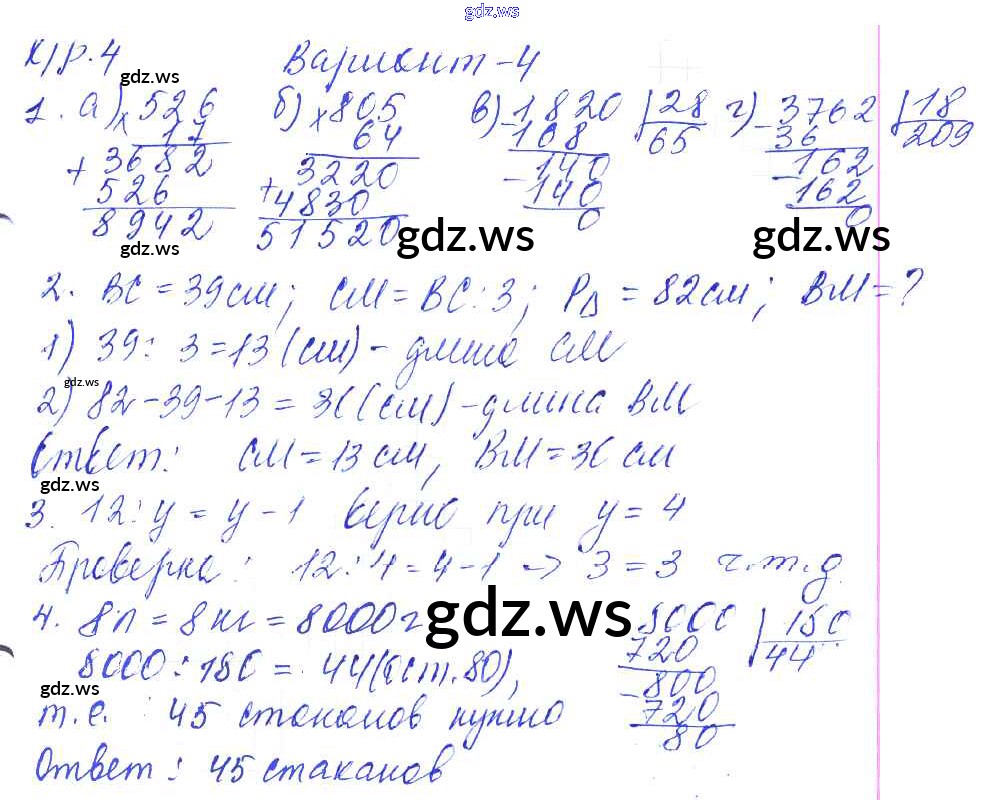 gdz.ws
К/р.4 Вариант-4
gdz.ws
1. а) × 526 б) × 805 в) 1820 | 28 г) 3762 | 18
17 64 - 168 65 - 36 209
+ 3682 3220 140 - 162
526 + 4830 - 140 162
8942 51520 0 0
gdz.ws gdz.ws gdz.ws
2. BC = 39см; СМ = ВС : 3; P△ = 82см; ВМ = ?
1) 39 : 3 = 13 (см) - длина СМ
gdz.ws
2) 82 - 39 - 13 = 30 (см) - длина ВМ
Ответ: СМ = 13 см, ВМ = 30 см
gdz.ws
3. 12 : y = y - 1 верно при y = 4
Проверка: 12 : 4 = 4 - 1 -> 3 = 3 ч.т.д.
gdz.ws
4. 8л = 8кг = 8000г 8000 | 180
8000 : 180 = 44 (ост. 80), 720 44
gdz.ws - 800
т.е. 45 стаканов нужно 720
80
Ответ: 45 стаканов
gdz.ws